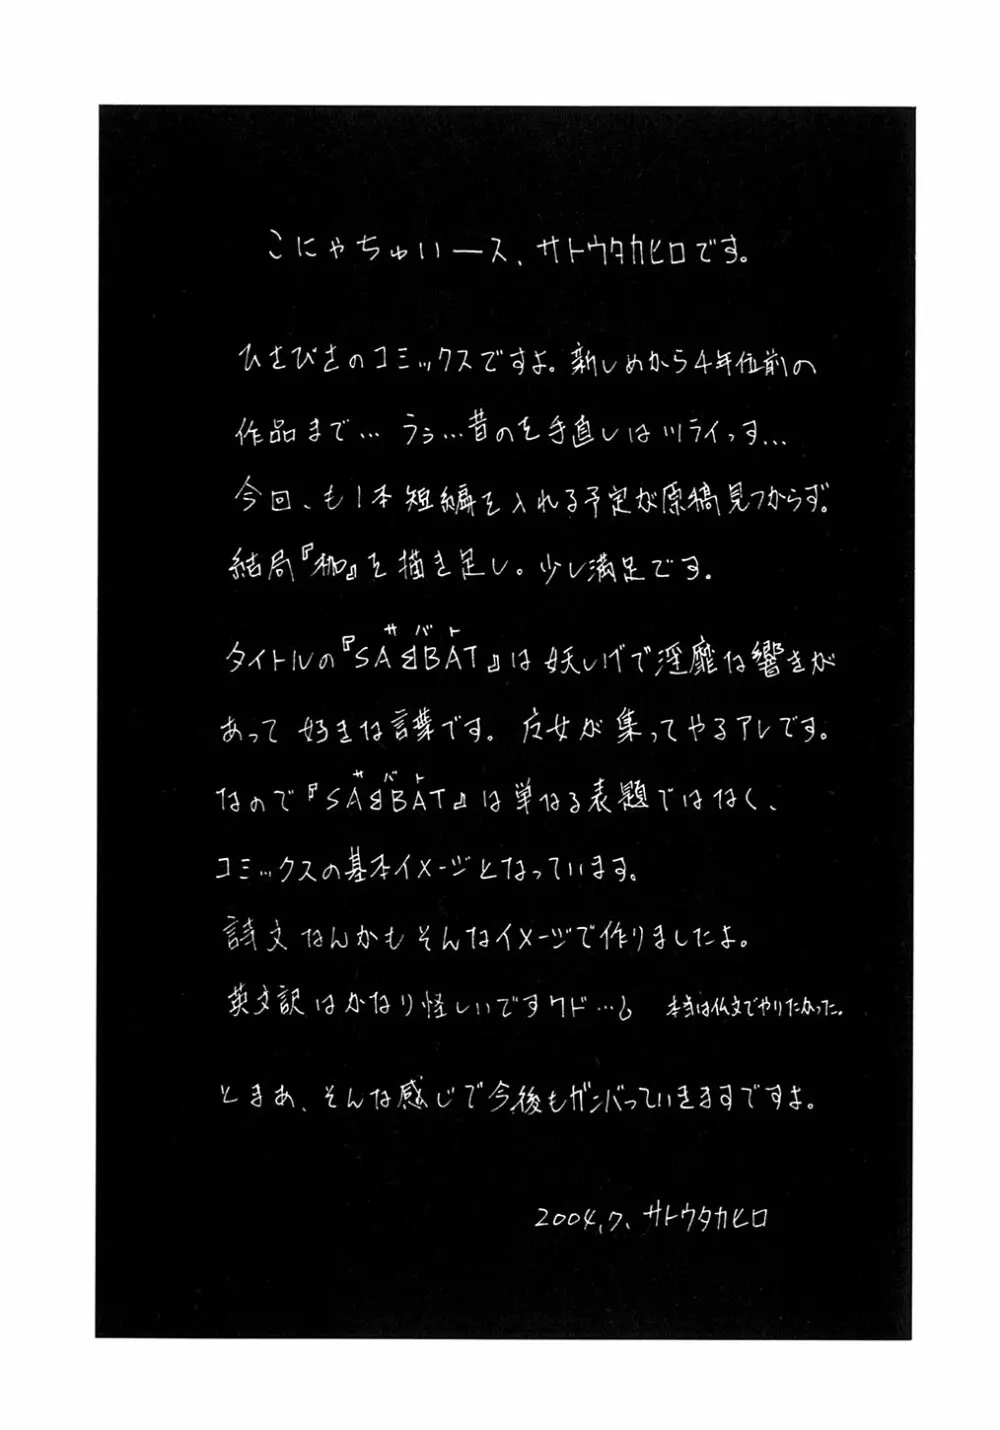 こにゃちゅいース、サトウタカヒロです。
ひさびさのコミックスですよ。新しめから4年位前の
作品まで… うぅ…昔のを手直しはツライっす…
今回、も1本短編を入れる予定が原稿見つからず。
結局『枷』を描き足し。少し満足です。
サバト
タイトルの『SABBAT』は妖しげで淫靡な響きが
あって好きな言葉です。女が集ってやるアレです。
サバト
なので『SABBAT』は単なる表題ではなく、
コミックスの基本イメージとなっています。
詩文なんかもそんなイメージで作りましたよ。
英文訳はかなり怪しいですケド… 本当は仏文でやりたかった。
とまあ、そんな感じで今後もガンバっていきますですよ。
2004.7. サトウタカヒロ